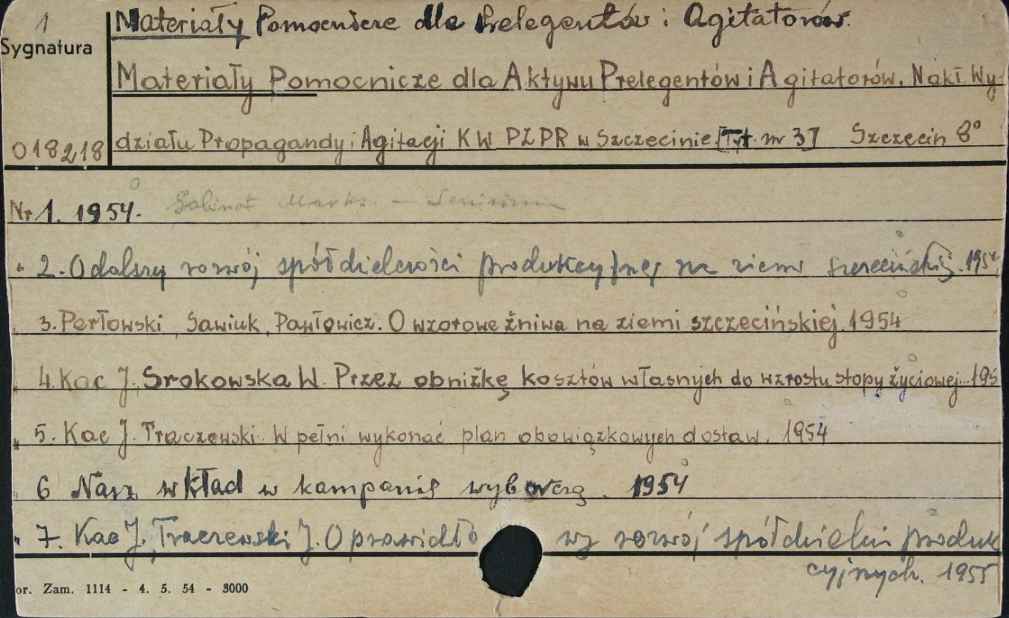 1
Materiały Pomocnicze dla Prelegentów i Agitatorów.
Sygnatura
Materiały Pomocnicze dla Aktywu Prelegentów i Agitatorów. Nakł. Wy-
018218 działu Propagandy i Agitacji KW PZPR w Szczecinie [Tyt. nr 3] Szczecin 8°
Nr 1. 1954.
" 2. O dalszy rozwój spółdzielczości produkcyjnej na ziemi szczecińskiej. 1954
" 3. Perłowski, Sawiuk, Pawłowicz. O wzorowe żniwa na ziemi szczecińskiej. 1954
" 4. Kac J. Srokowska W. Przez obniżkę kosztów własnych do wzrostu stopy życiowej. 195
" 5. Kac J. Traczewski. W pełni wykonać plan obowiązkowych dostaw. 1954
6 Nasz wkład w kampanię wyborczą. 1954
" 7. Kac J., Traczewski J. O prawidło wy rozwój spółdzielni produk
cyjnych. 1955
or. Zam. 1114 - 4. 5. 54 - 3000